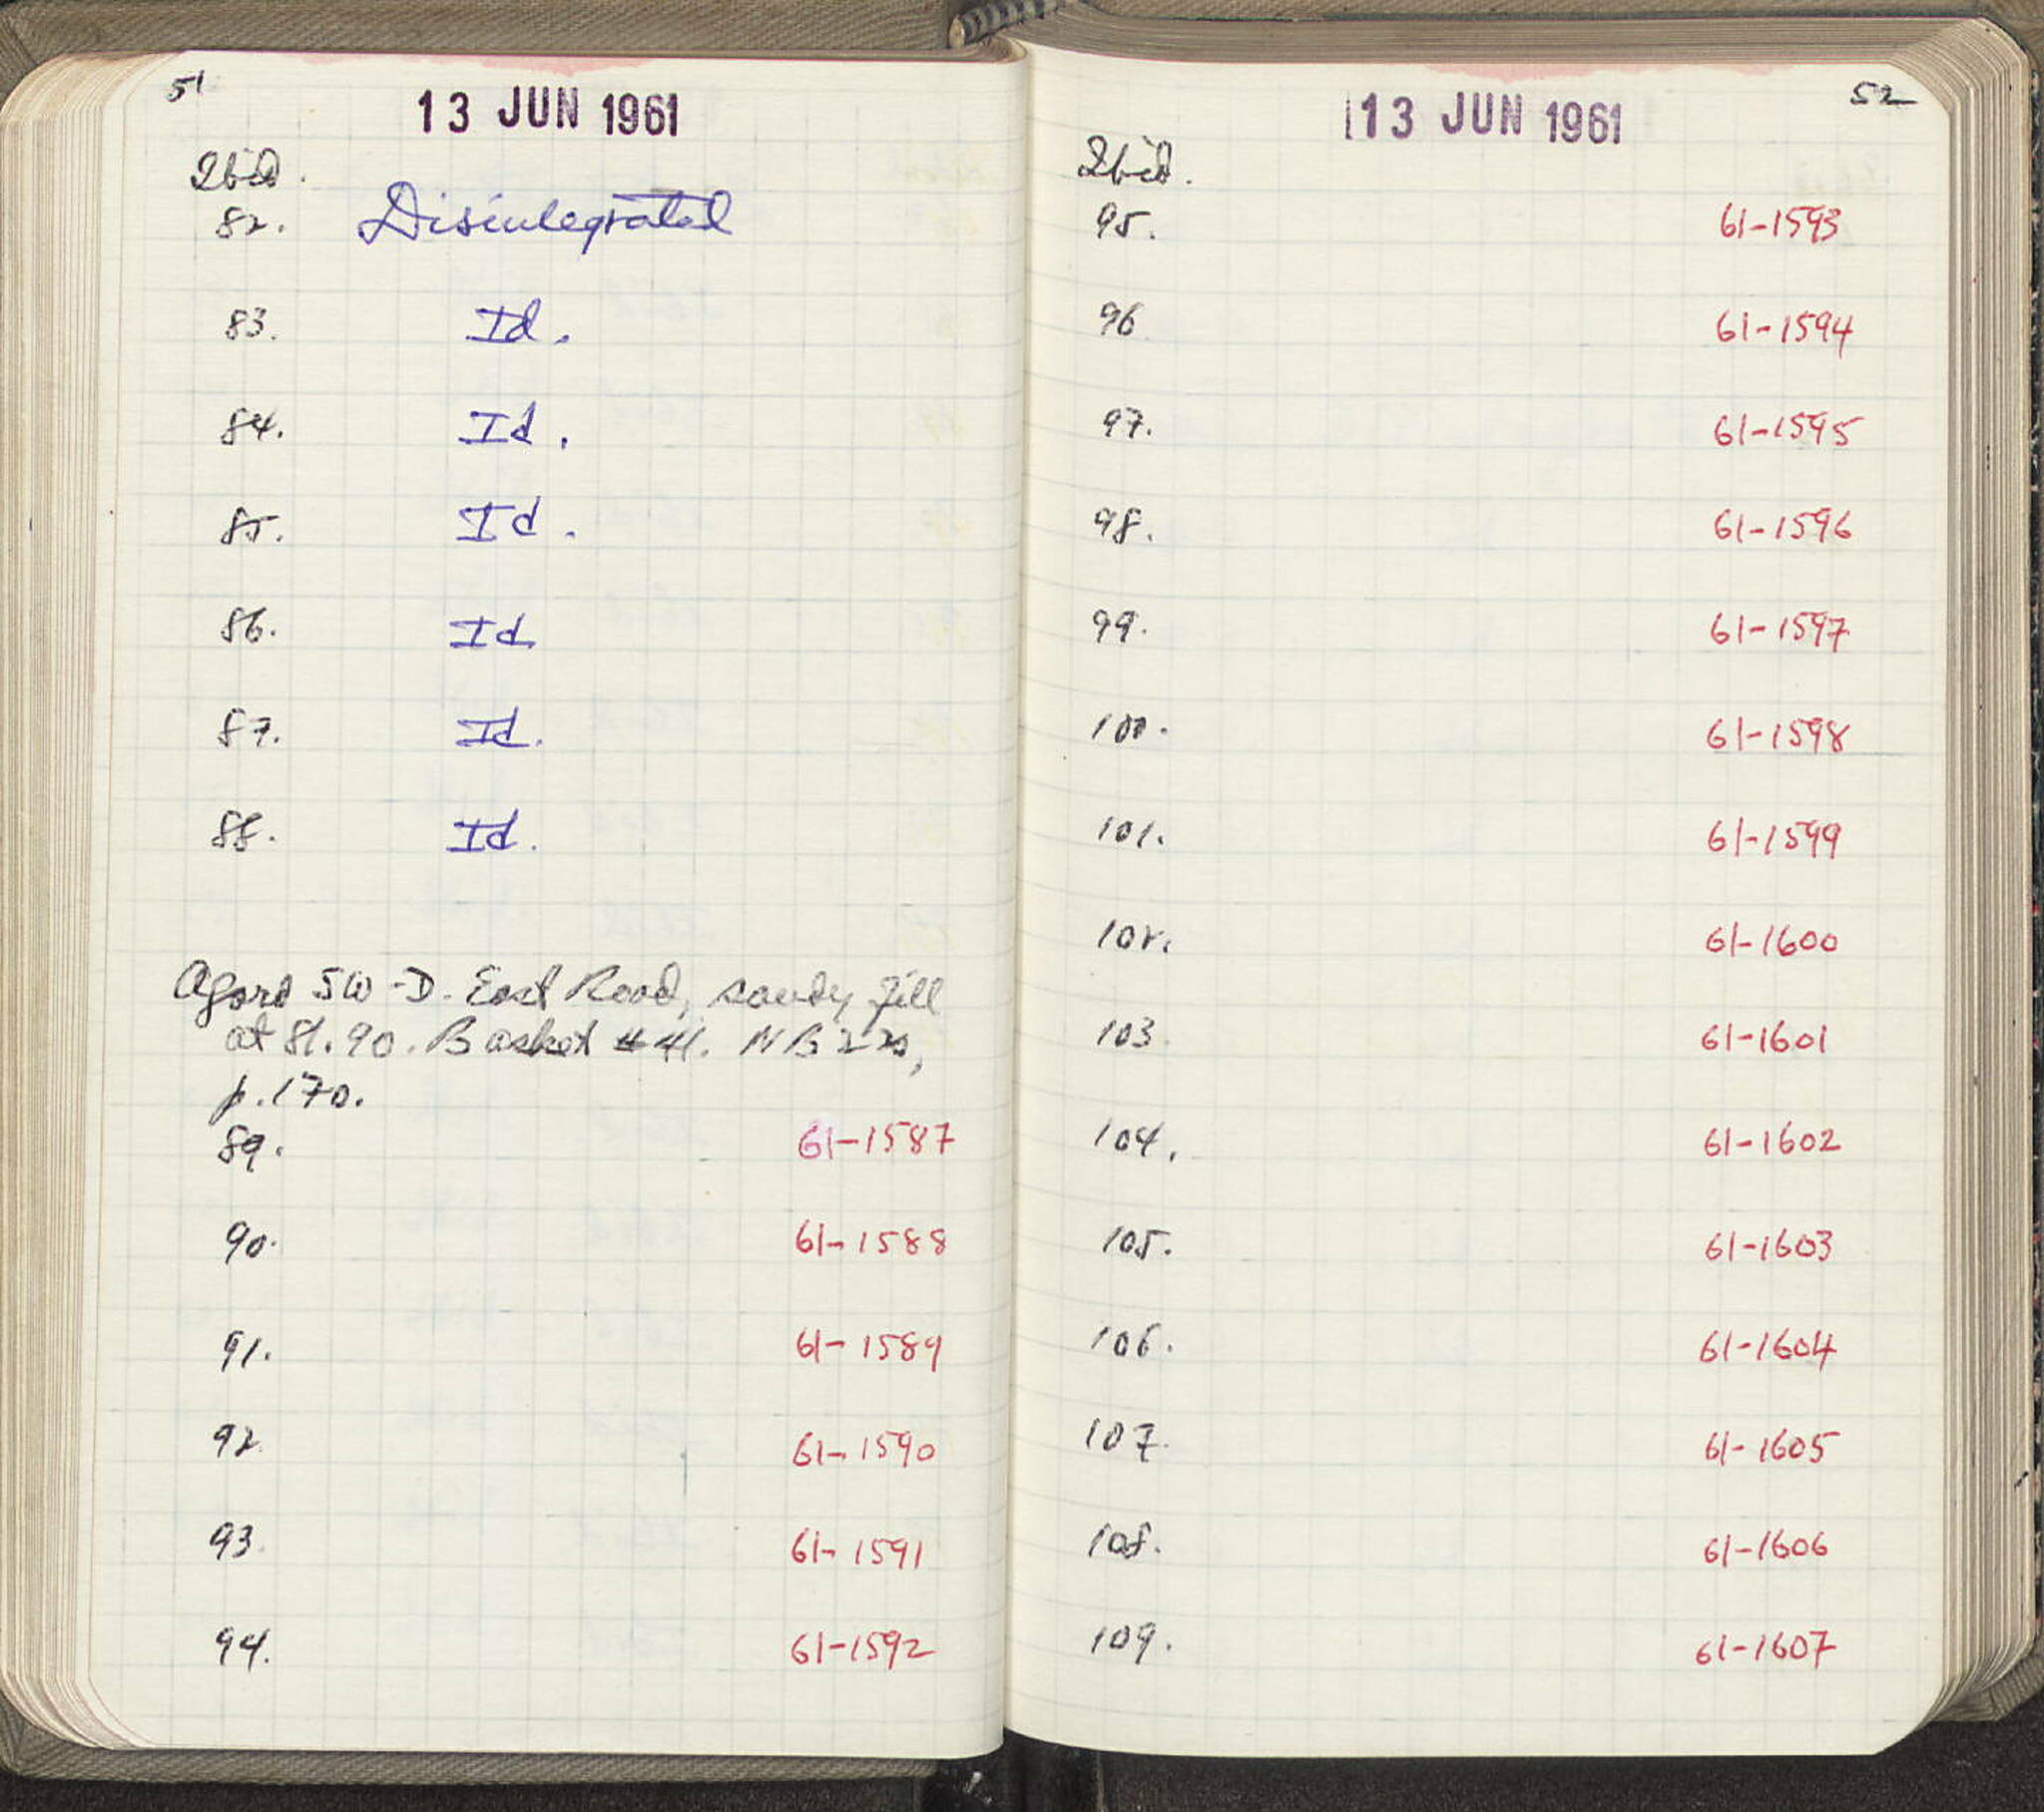 51
13 JUN 1961
Ibid.
82. Disintegrated
83. Id.
84. Id.
85. Id.
86. Id.
87. Id.
88. Id.
Agora SW-D. East Road, sandy fill
at 81.90. Basket #41. NB 22,
p. 170.
89. 61-1587
90. 61-1588
91. 61-1589
92. 61-1590
93. 61-1591
94. 61-1592
52
13 JUN 1961
Ibid.
95. 61-1593
96 61-1594
97. 61-1595
98. 61-1596
99. 61-1597
100. 61-1598
101. 61-1599
102. 61-1600
103. 61-1601
104. 61-1602
105. 61-1603
106. 61-1604
107. 61-1605
108. 61-1606
109. 61-1607